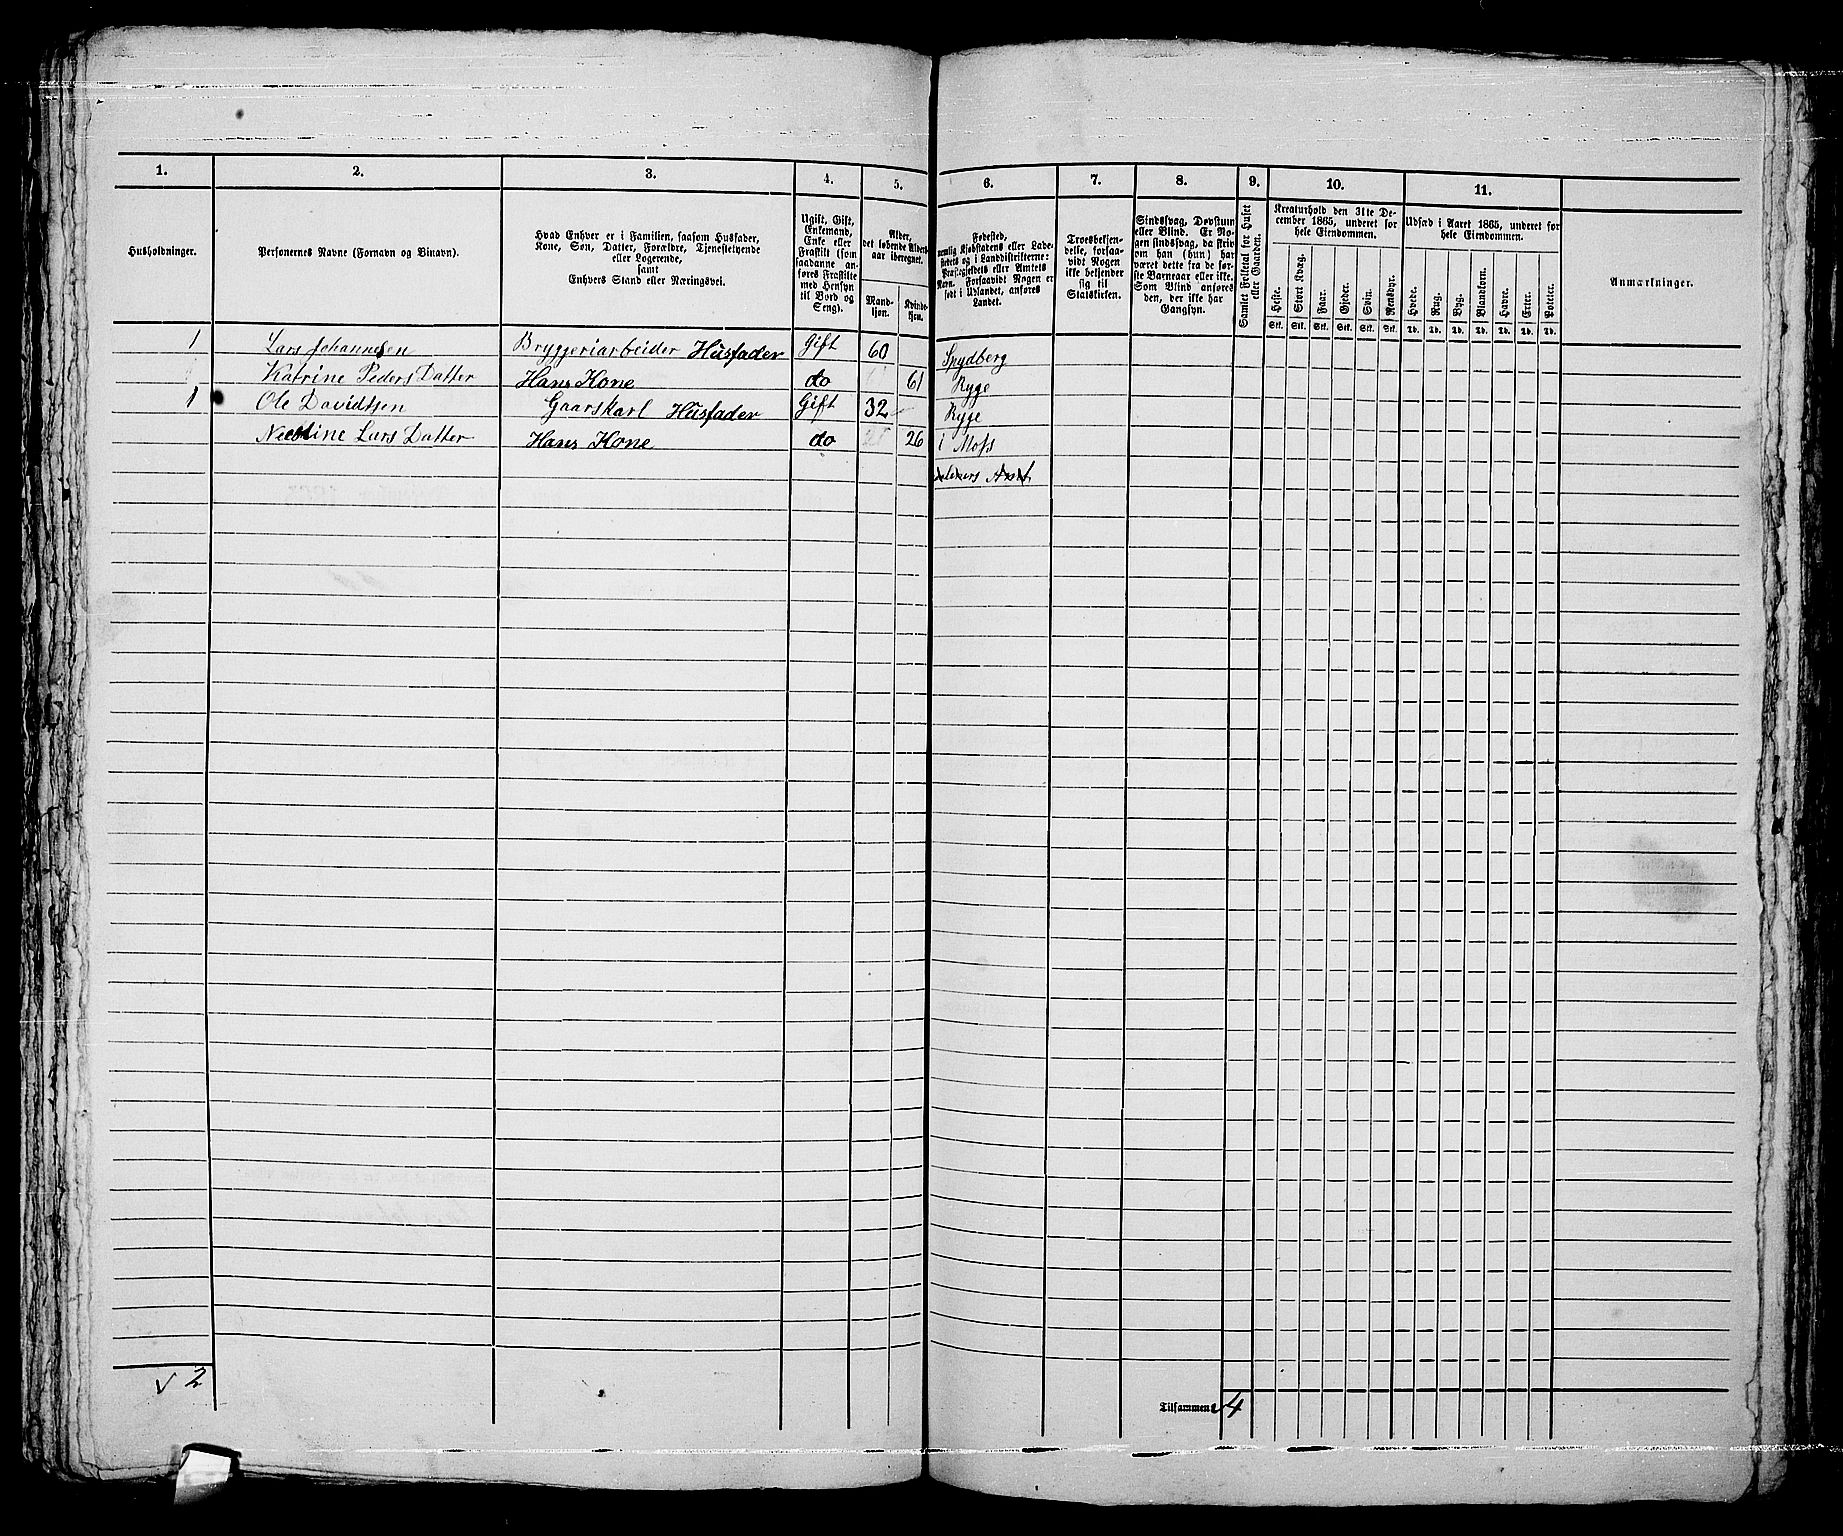 1. 2. 3. 4. 5. 6. 7. 8. 9. 10. 11.
Husholdninger.
Personernes Navne (Fornavn og Binavn).
Hvad Enhver er i Familien, saasom Husfader,
Kone, Søn, Datter, Forældre, Tjenestetyende
eller Logerende,
samt
Enhvers Stand eller Næringsvei.
Ugift, Gift,
Enkemand,
Enke eller
Fraskilt (som
saadanne an-
føres Fraskilte
med Hensyn
til Bord og
Seng).
Alder,
det løbende Alders-
aar iberegnet.
Mand-
kjøn.
Kvinde-
kjøn.
Fødested,
nemlig Kjøbstadens eller Lade-
stedets og i Landdistrikterne:
Præstegjeldets eller Amtets
Navn. Forsaavidt Nogen er
født i Udlandet, anføres
Landet.
Troesbekjen-
delse, forsaa-
vidt Nogen
ikke bekjender
sig til
Statskirken.
Sindssvag, Døvstum
eller Blind. Er No-
gen sindssvag, da skriv
om han (hun) har
været dette fra de før-
ste Barneaar eller ikke.
Som Blind anføres
den, der ikke har
Gangsyn.
Samlet Folketal for Huset
eller Gaarden.
Kreaturhold den 31te De-
cember 1865, underet for
hele Eiendommen.
Heste.
Stort Kvæg.
Faar.
Gjeder.
Svin.
Rensdyr.
Stk. Stk. Stk. Stk. Stk. Stk.
Udsæd i Aaret 1865, underet for
hele Eiendommen.
Hvede.
Rug.
Byg.
Blandkorn.
Havre.
Erter.
Poteter.
Td. Td. Td. Td. Td. Td. Td.
Anmærkninger.
1 Lars Johannesen Bryggeriarbeider Husfader Gift 60 Spydberg
Katrine Peders Datter Hans Kone do 61 Ryge
1 Ole Davidtsen Gaarskarl Husfader Gift 32 Ryge
Lars Datter Hans Kone do 26 i Moss
2
Tilsammen 4